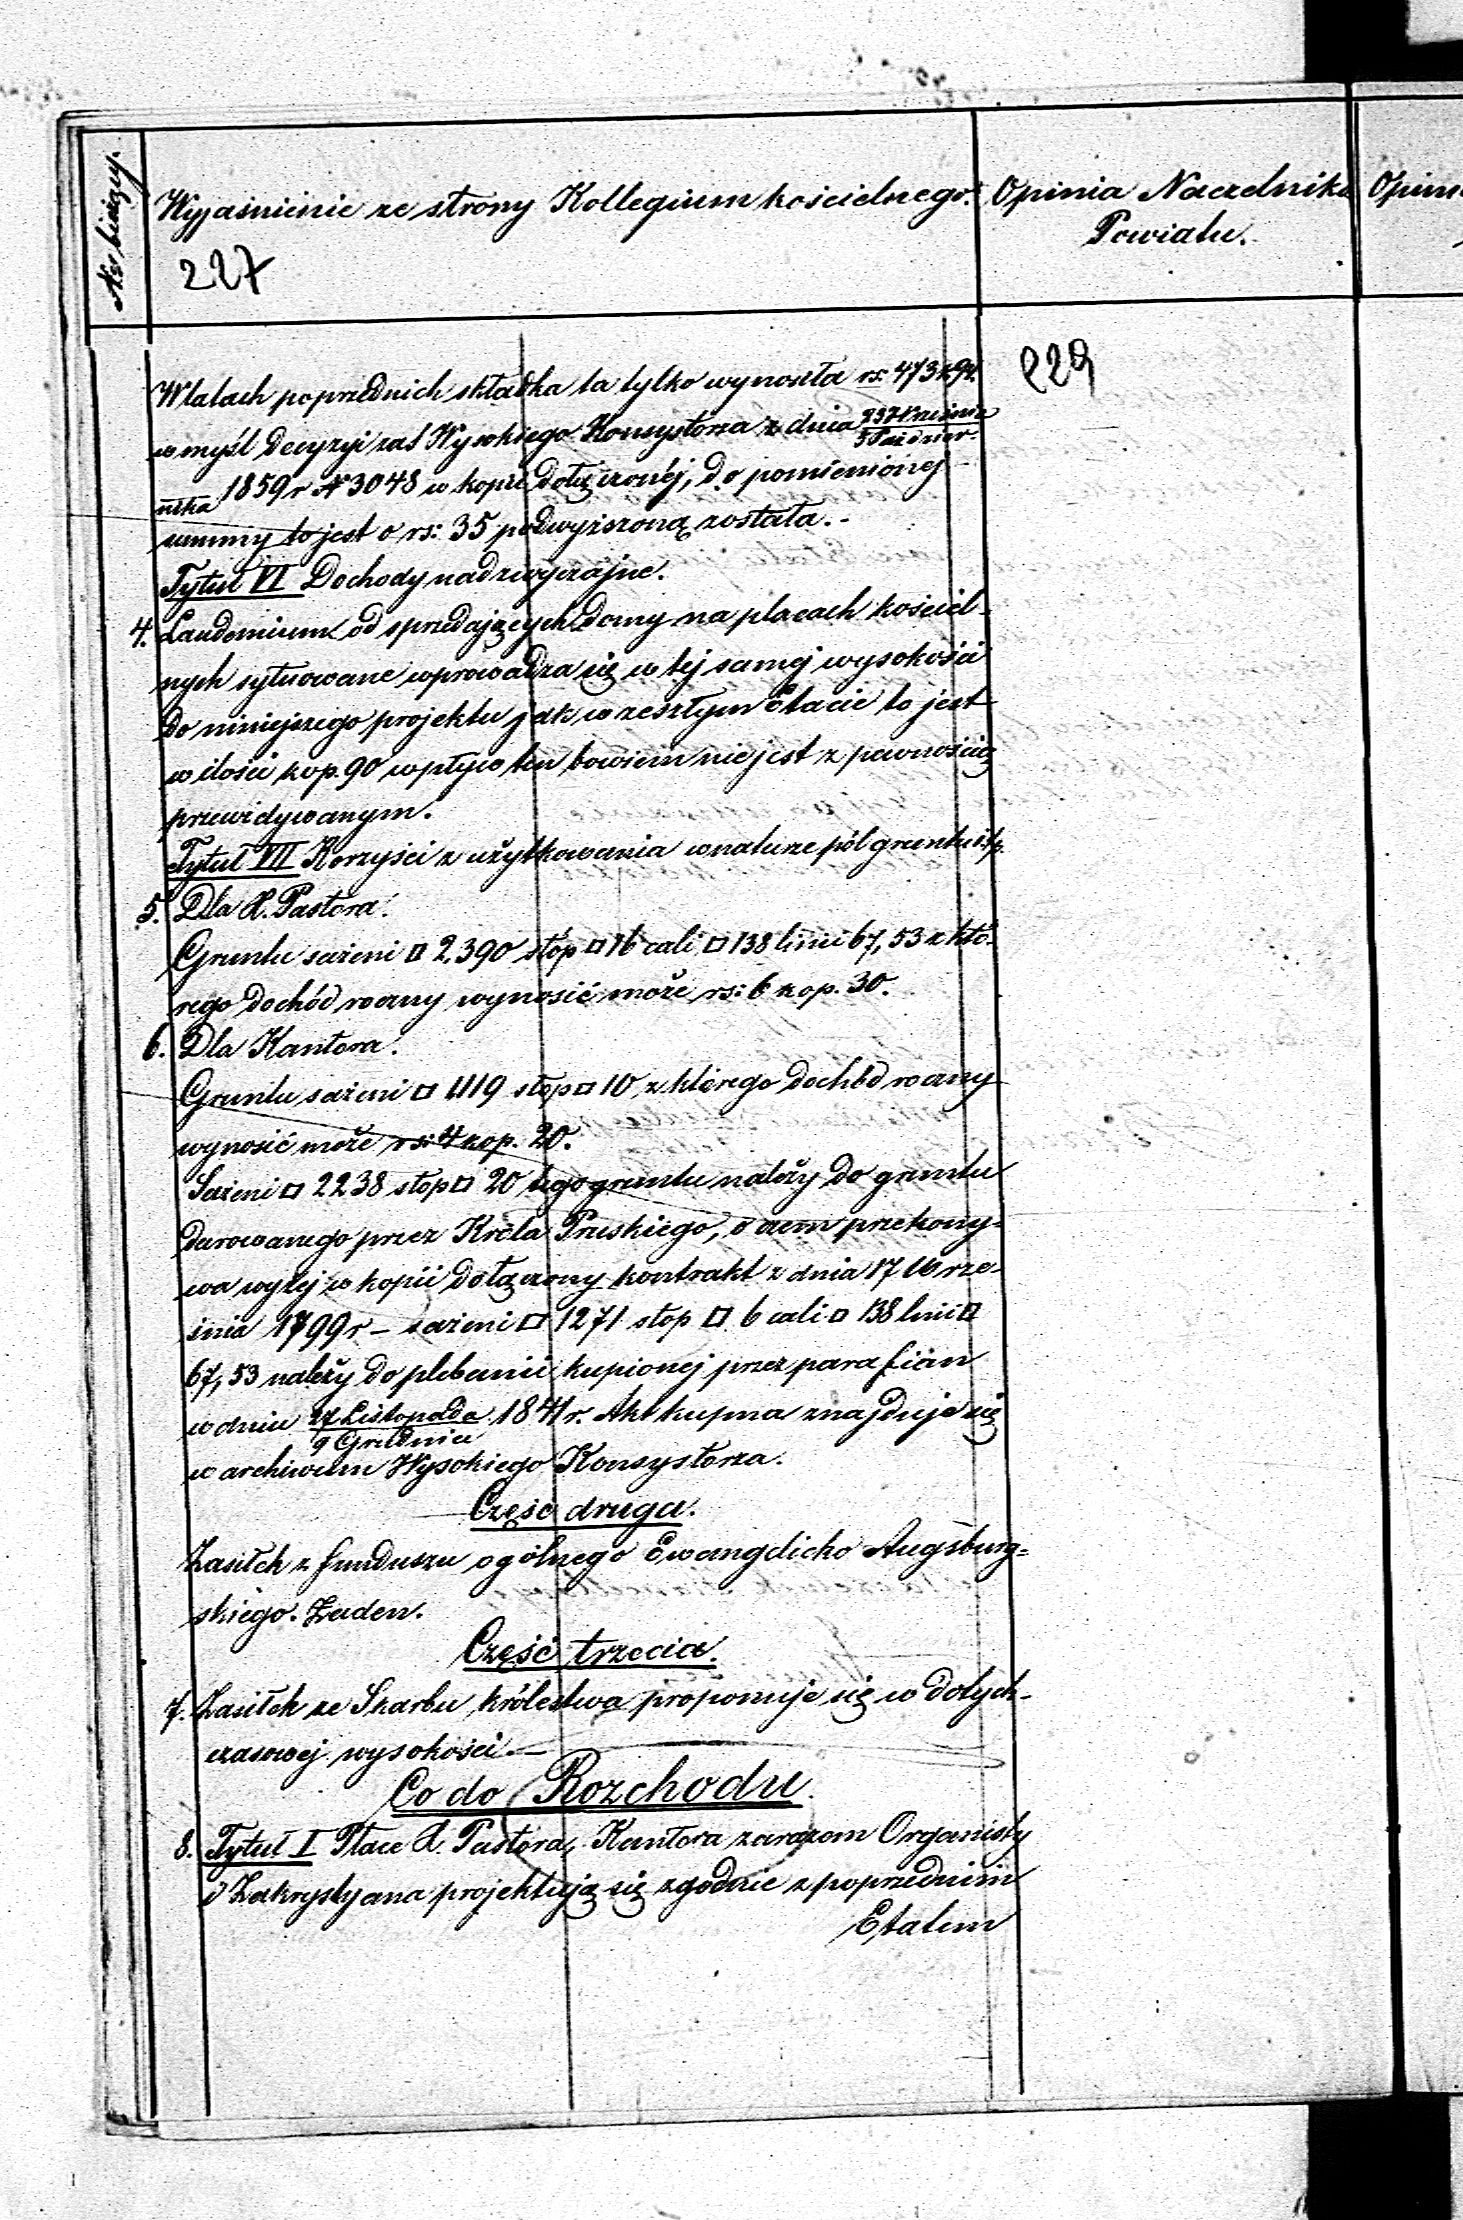 Nr bieżący.
Wyjaśnienie ze strony Kollegium kościelnego.
Opinia Naczelnika
Powiatu.
Opini
227
229
W latach poprzednich składka ta tylko wynosiła rs: 473 k. 94.
w myśl Decyzyi zaś Wysokiego Konsystorza z dnia 23 Września / 5 Paździer-
nika 1859 r N 3048 w kopii dołączonéj, do pomienionej
summy to jest o rs: 35 podwyższoną została.-
Tytuł VI Dochody nadzwyczajne.
4. Laudemium od sprzedających domy na placach kościel-
nych sytuowane wprowadza się w tej samej wysokości
do niniejszego projektu jak w zeszłym Etacie to jest
w ilości kop. 90 wpływ ten bowiem nie jest z pewnością
przewidywanym.
Tytuł VII Korzyści z użytkowania w naturze pól gruntu i t.p.
5. Dla X. Pastora.
Gruntu sażeni □ 2,390 stóp □ 16 cali □ 138 linii 67,53 z któ-
rego dochód roczny wynosić może rs: 6 kop. 30.
6. Dla Kantora.
Gruntu sażeni □ 1119 stop □ 10, z którego dochód roczny
wynosić może rs: 4 kop. 20.
Sażeni □ 2238 stop □ 20 tego gruntu należy do gruntu
darowanego przez Króla Pruskiego, o czem przekony-
wa wyżej w kopii dołączony kontrakt z dnia 17 Wrze-
śnia 1799 r – sażeni □ 1271 stop □ 6 cali □ 138 linii □
67,53 należy do plebanii kupionej przez parafian
w dniu 27 Listopada / 9 Grudnia 1841 r. Akt kupna znajduje się
w archiwum Wysokiego Konsystorza.
Część druga.
Zasiłek z funduszu ogólnego Ewangelicko Augsburg-
skiego. Żaden.
Część trzecia.
7. Zasiłek ze Skarbu królestwa proponuje się w dotych-
czasowej wysokości.–
Co do Rozchodu.
8. Tytuł I Płace X. Pastora, Kantora zarazem Organisty
i Zakrystyana projektują się zgodnie z poprzednim
Etatem